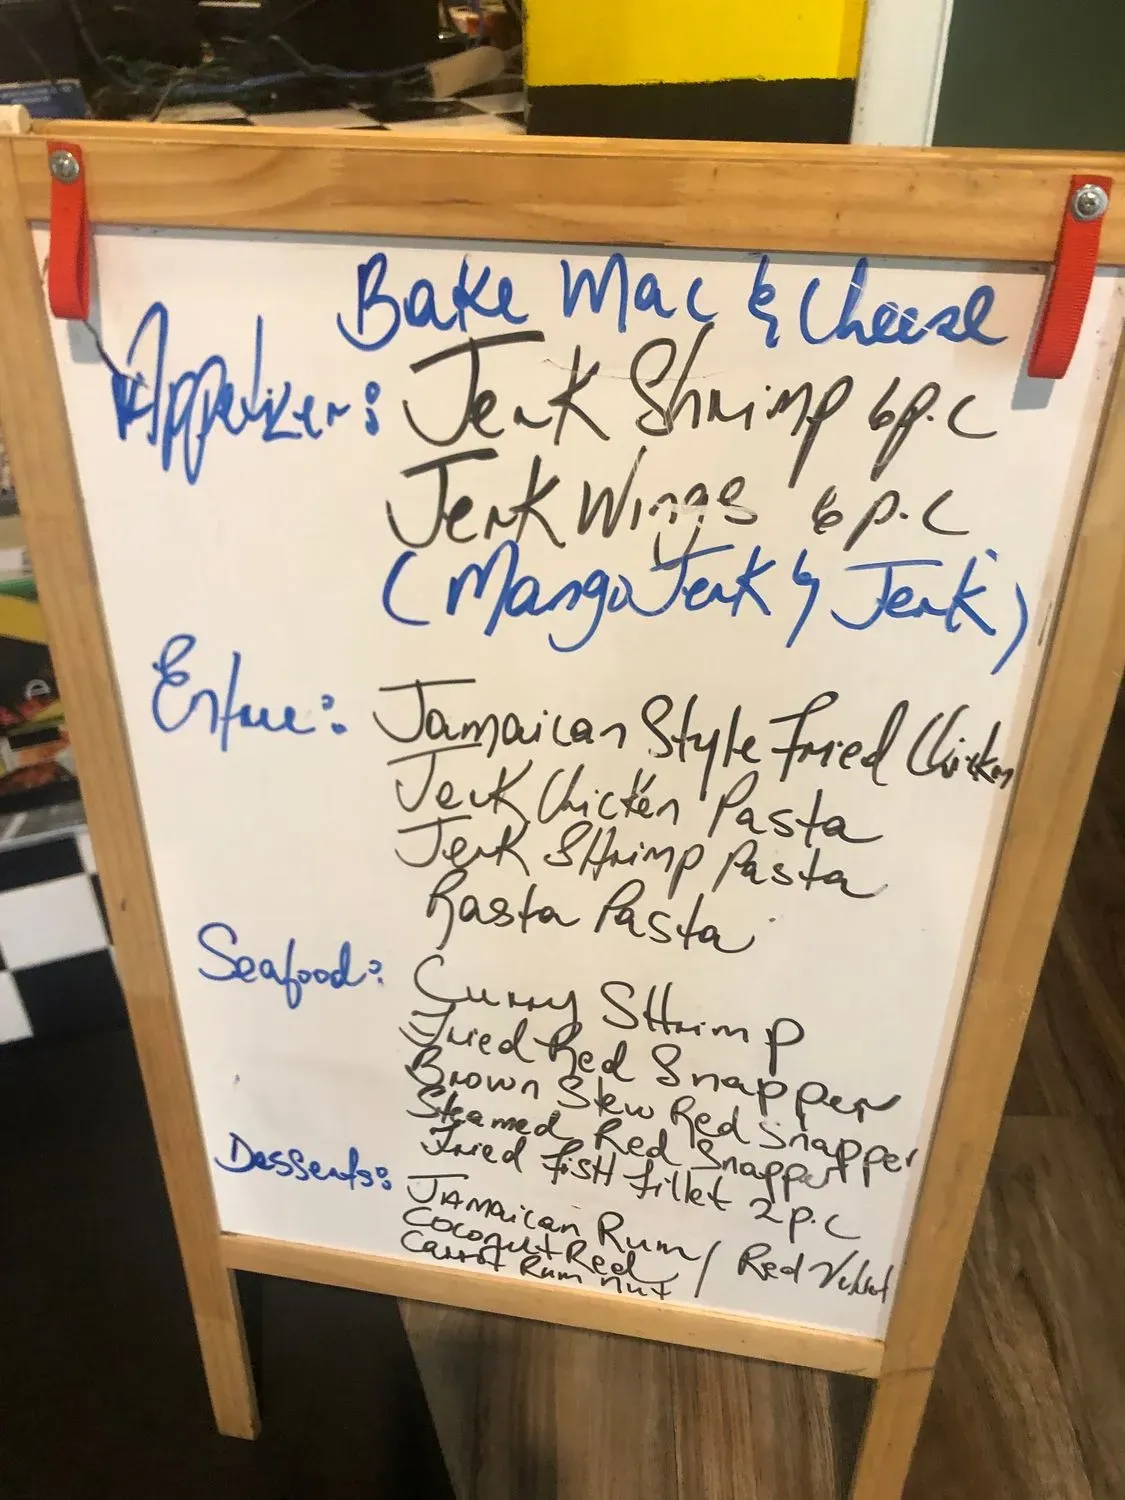 Bake Mac & Cheese
Appetizer: Jerk Shrimp 6p.c
Jerk Wings 6 p.c
(Mango Jerk & Jerk)
Entree: Jamaican Style Fried Chicken
Jerk Chicken Pasta
Jerk SHrimp Pasta
Rasta Pasta
Seafood: Curry SHrimp
Fried Red Snapper
Brown Stew Red Snapper
Steamed Red Snapper
Fried FisH Fillet 2 p.c
Desserts: JAmaican Rum / Red Velvet
Coconut Red
Carrot Rum nut